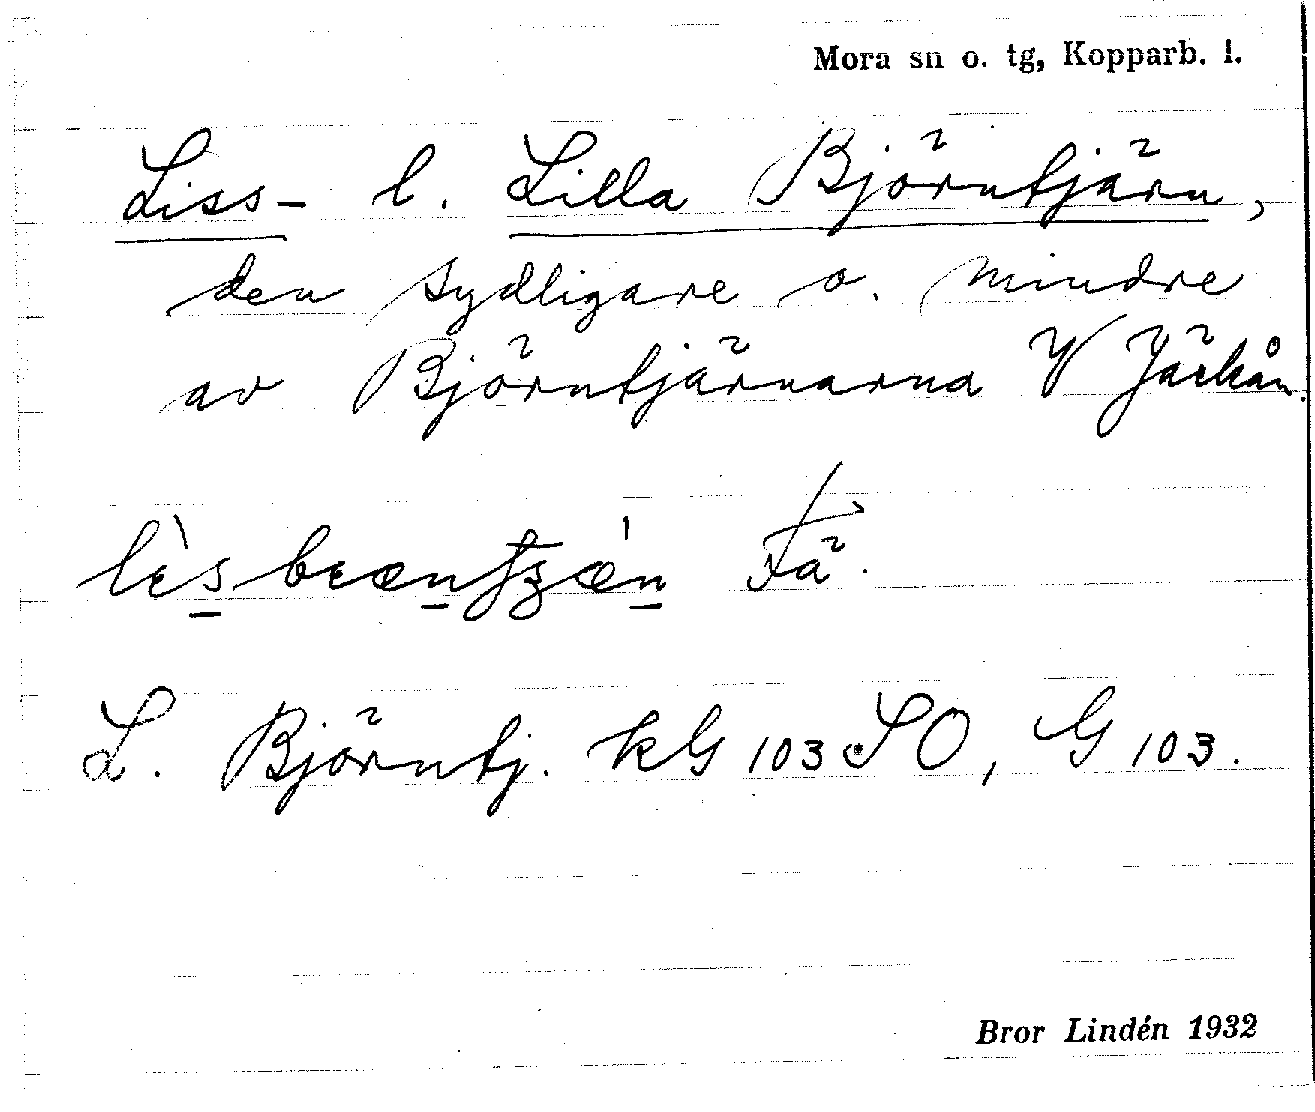 Mora sn o. tg, Kopparb. l.
Liss- l. Lilla Björntjärn,
den sydligare o. mindre
av Björntjärnarna V Järkån.
Fä.
L. Björntj. kG 103 SO, G 103.
Bror Lindén 1932